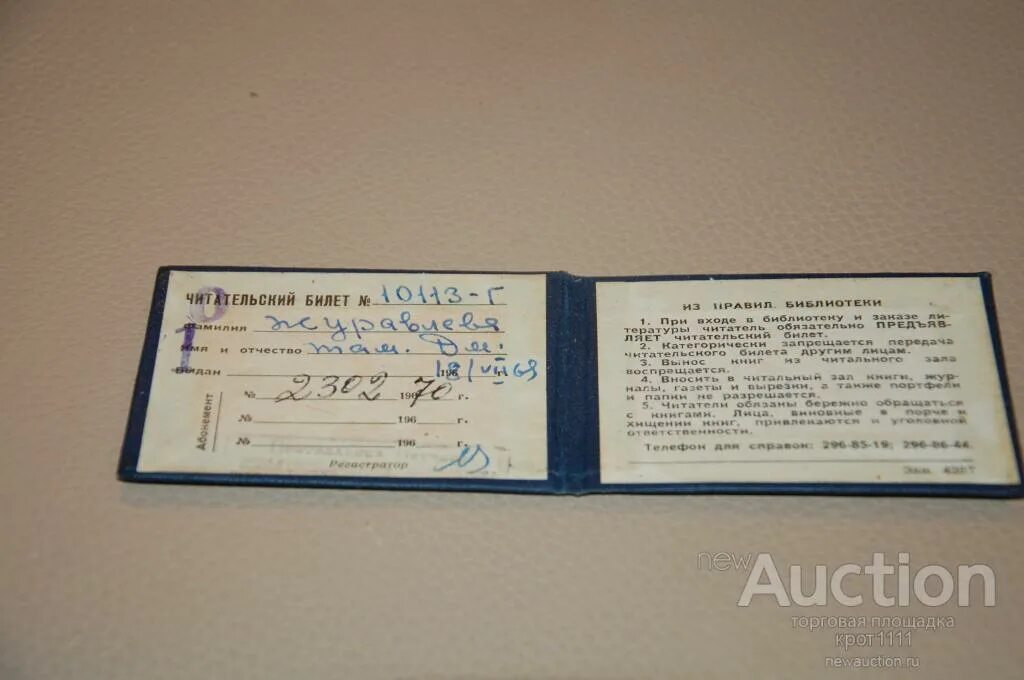 ЧИТАТЕЛЬСКИЙ БИЛЕТ № 10113-Г
Фамилия Журавлева
Имя и отчество Там. Дм.
Выдан 18/VII 69 196 г.
Абонемент
№ 2302 1970 г.
№ 196 г.
№ 196 г.
Регистратор
ИЗ ПРАВИЛ БИБЛИОТЕКИ
1. При входе в библиотеку и заказе ли-
тературы читатель обязательно ПРЕДЪЯВ-
ЛЯЕТ читательский билет.
2. Категорически запрещается передача
читательского билета другим лицам.
3. Вынос книг из читального зала
воспрещается.
4. Вносить в читальный зал книги, жур-
налы, газеты и вырезки, а также портфели
и папки не разрешается.
5. Читатели обязаны бережно обращаться
с книгами. Лица, виновные в порче и
хищении книг, привлекаются к уголовной
ответственности.
Телефон для справок: 296-85-19; 296-86-44
Зак 4267
new Auction
торговая площадка
крот1111
newauction.ru